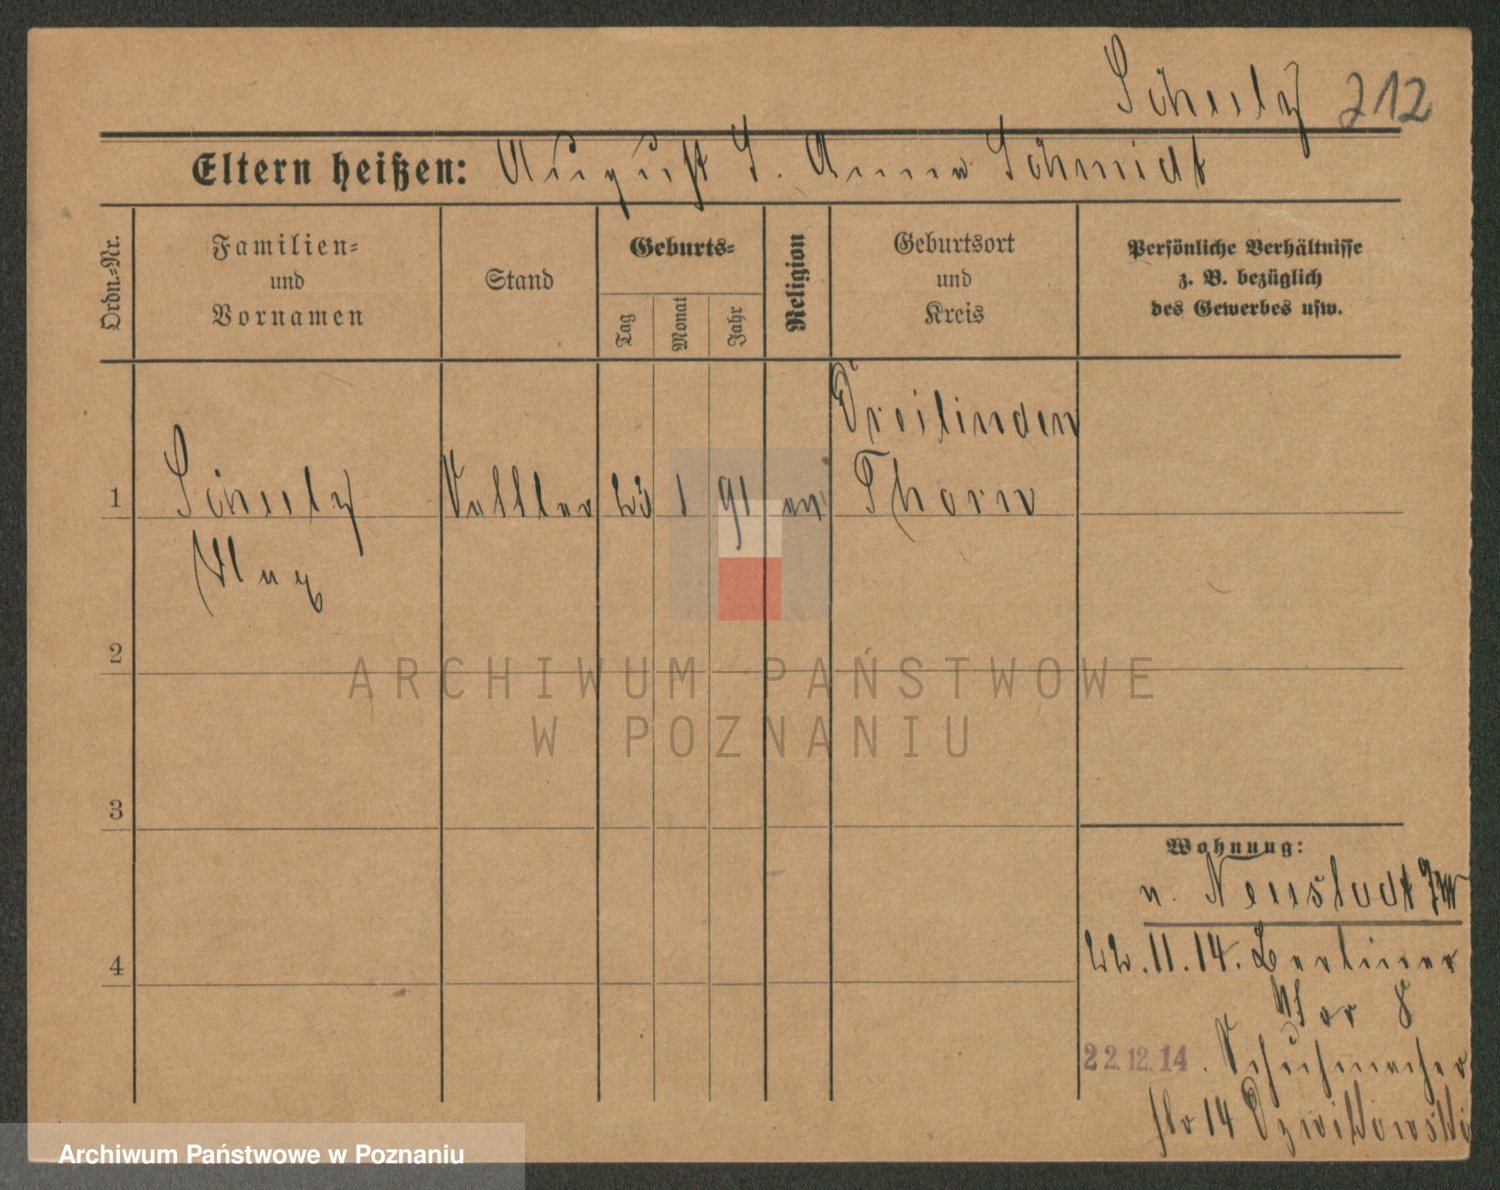 Schulz 212
Eltern heißen: August S. Anna Schmidt
Ordn.=Nr.
Familien=
und
Vornamen
Stand
Geburts=
Tag
Monat
Jahr
Religion
Geburtsort
und
Kreis
Persönliche Verhältnisse
z. B. bezüglich
des Gewerbes usw.
Dreilinden
1 Schulz Sattler 23 1 91 ev Thorn
Max
2
3
4
ARCHIWUM PAŃSTWOWE
W POZNANIU
Wohnung:
n. Neustadt
22.11.14. Berliner
8
22.12.14. Schuhmacher
str 14 Dzwikowski
Archiwum Państwowe w Poznaniu